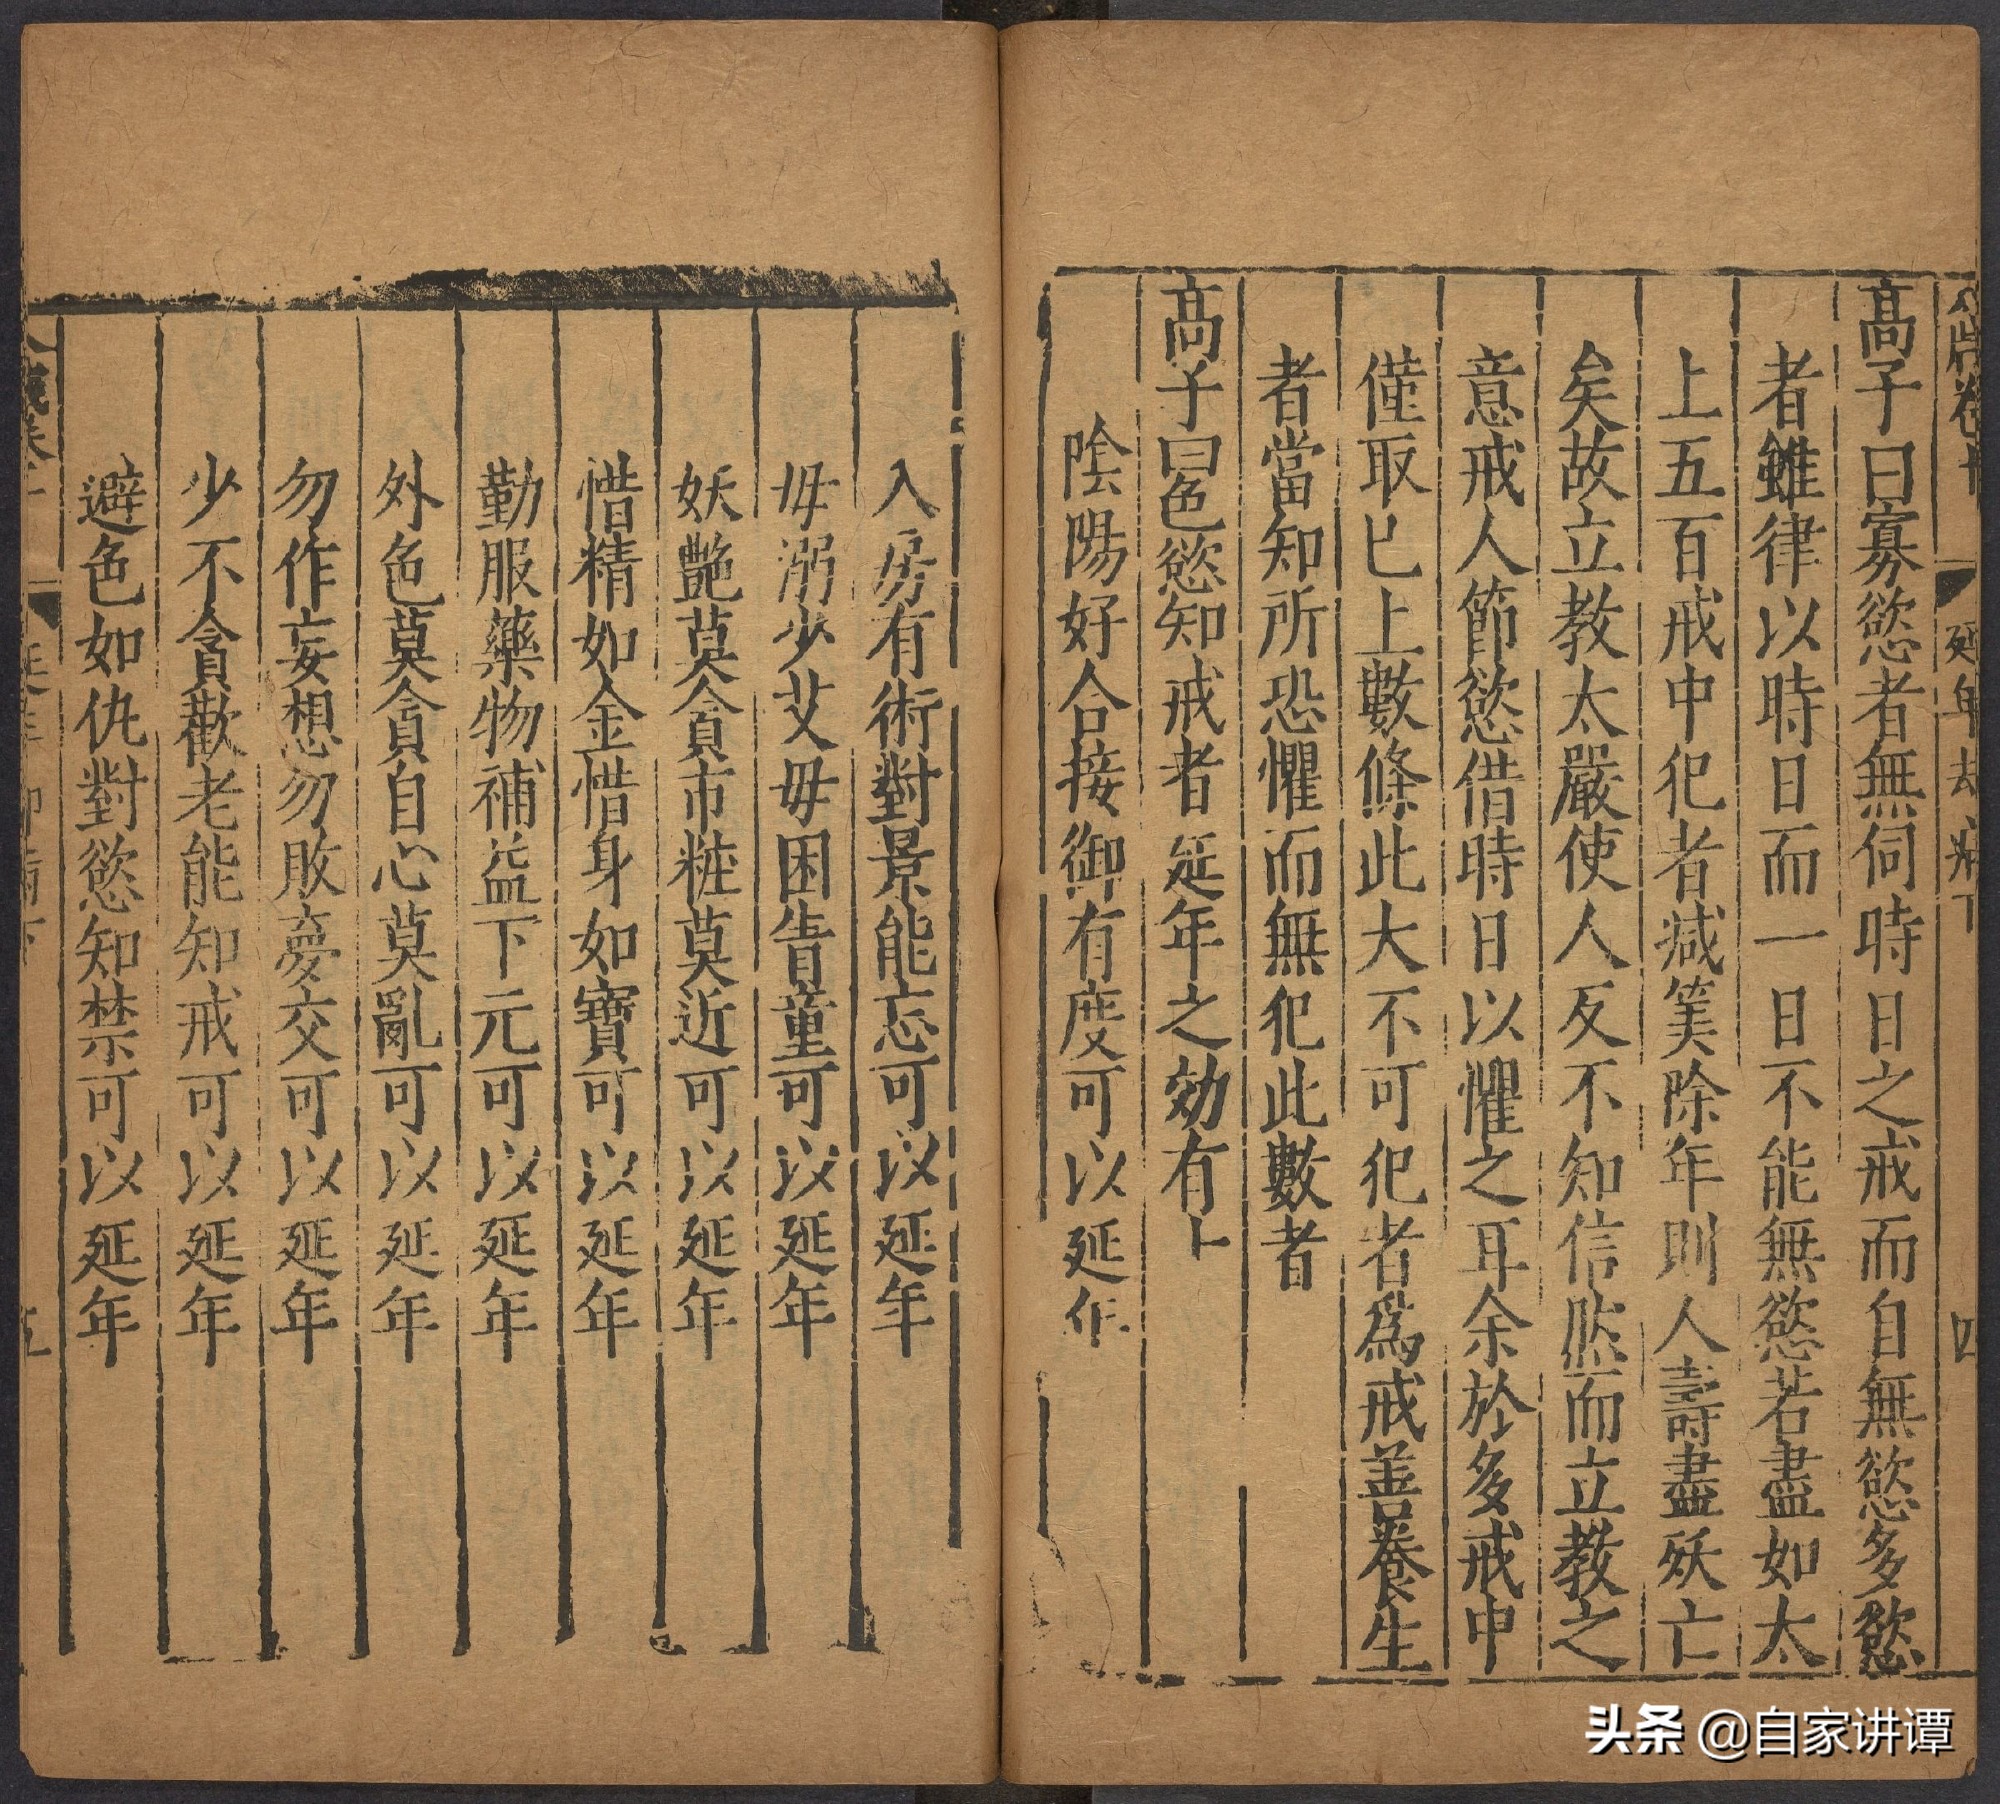 高子曰寡慾者無伺時日之戒而自無慾多慾
者雖律以時日而一日不能無慾若盡如太
上五百戒中犯者减筭除年則人壽盡殀亡
矣故立教太嚴使人反不知信然而立教之
意戒人節慾借時日以懼之耳余於多戒中
僅取已上數條此大不可犯者為戒善養生
者當知所恐懼而無犯此數者
高子曰色慾知戒者延年之効有
陰陽好合接御有度可以延年
入房有術對景能忘可以延年
毋溺少艾毋困眚童可以延年
妖艷莫貪市粧莫近可以延年
惜精如金惜身如寶可以延年
勤服藥物補益下元可以延年
外色莫貪自心莫亂可以延年
勿作妄想勿敗夢交可以延年
少不貪歡老能知戒可以延年
避色如仇對慾知禁可以延年
延年却病下
四
头条 @自家讲谭